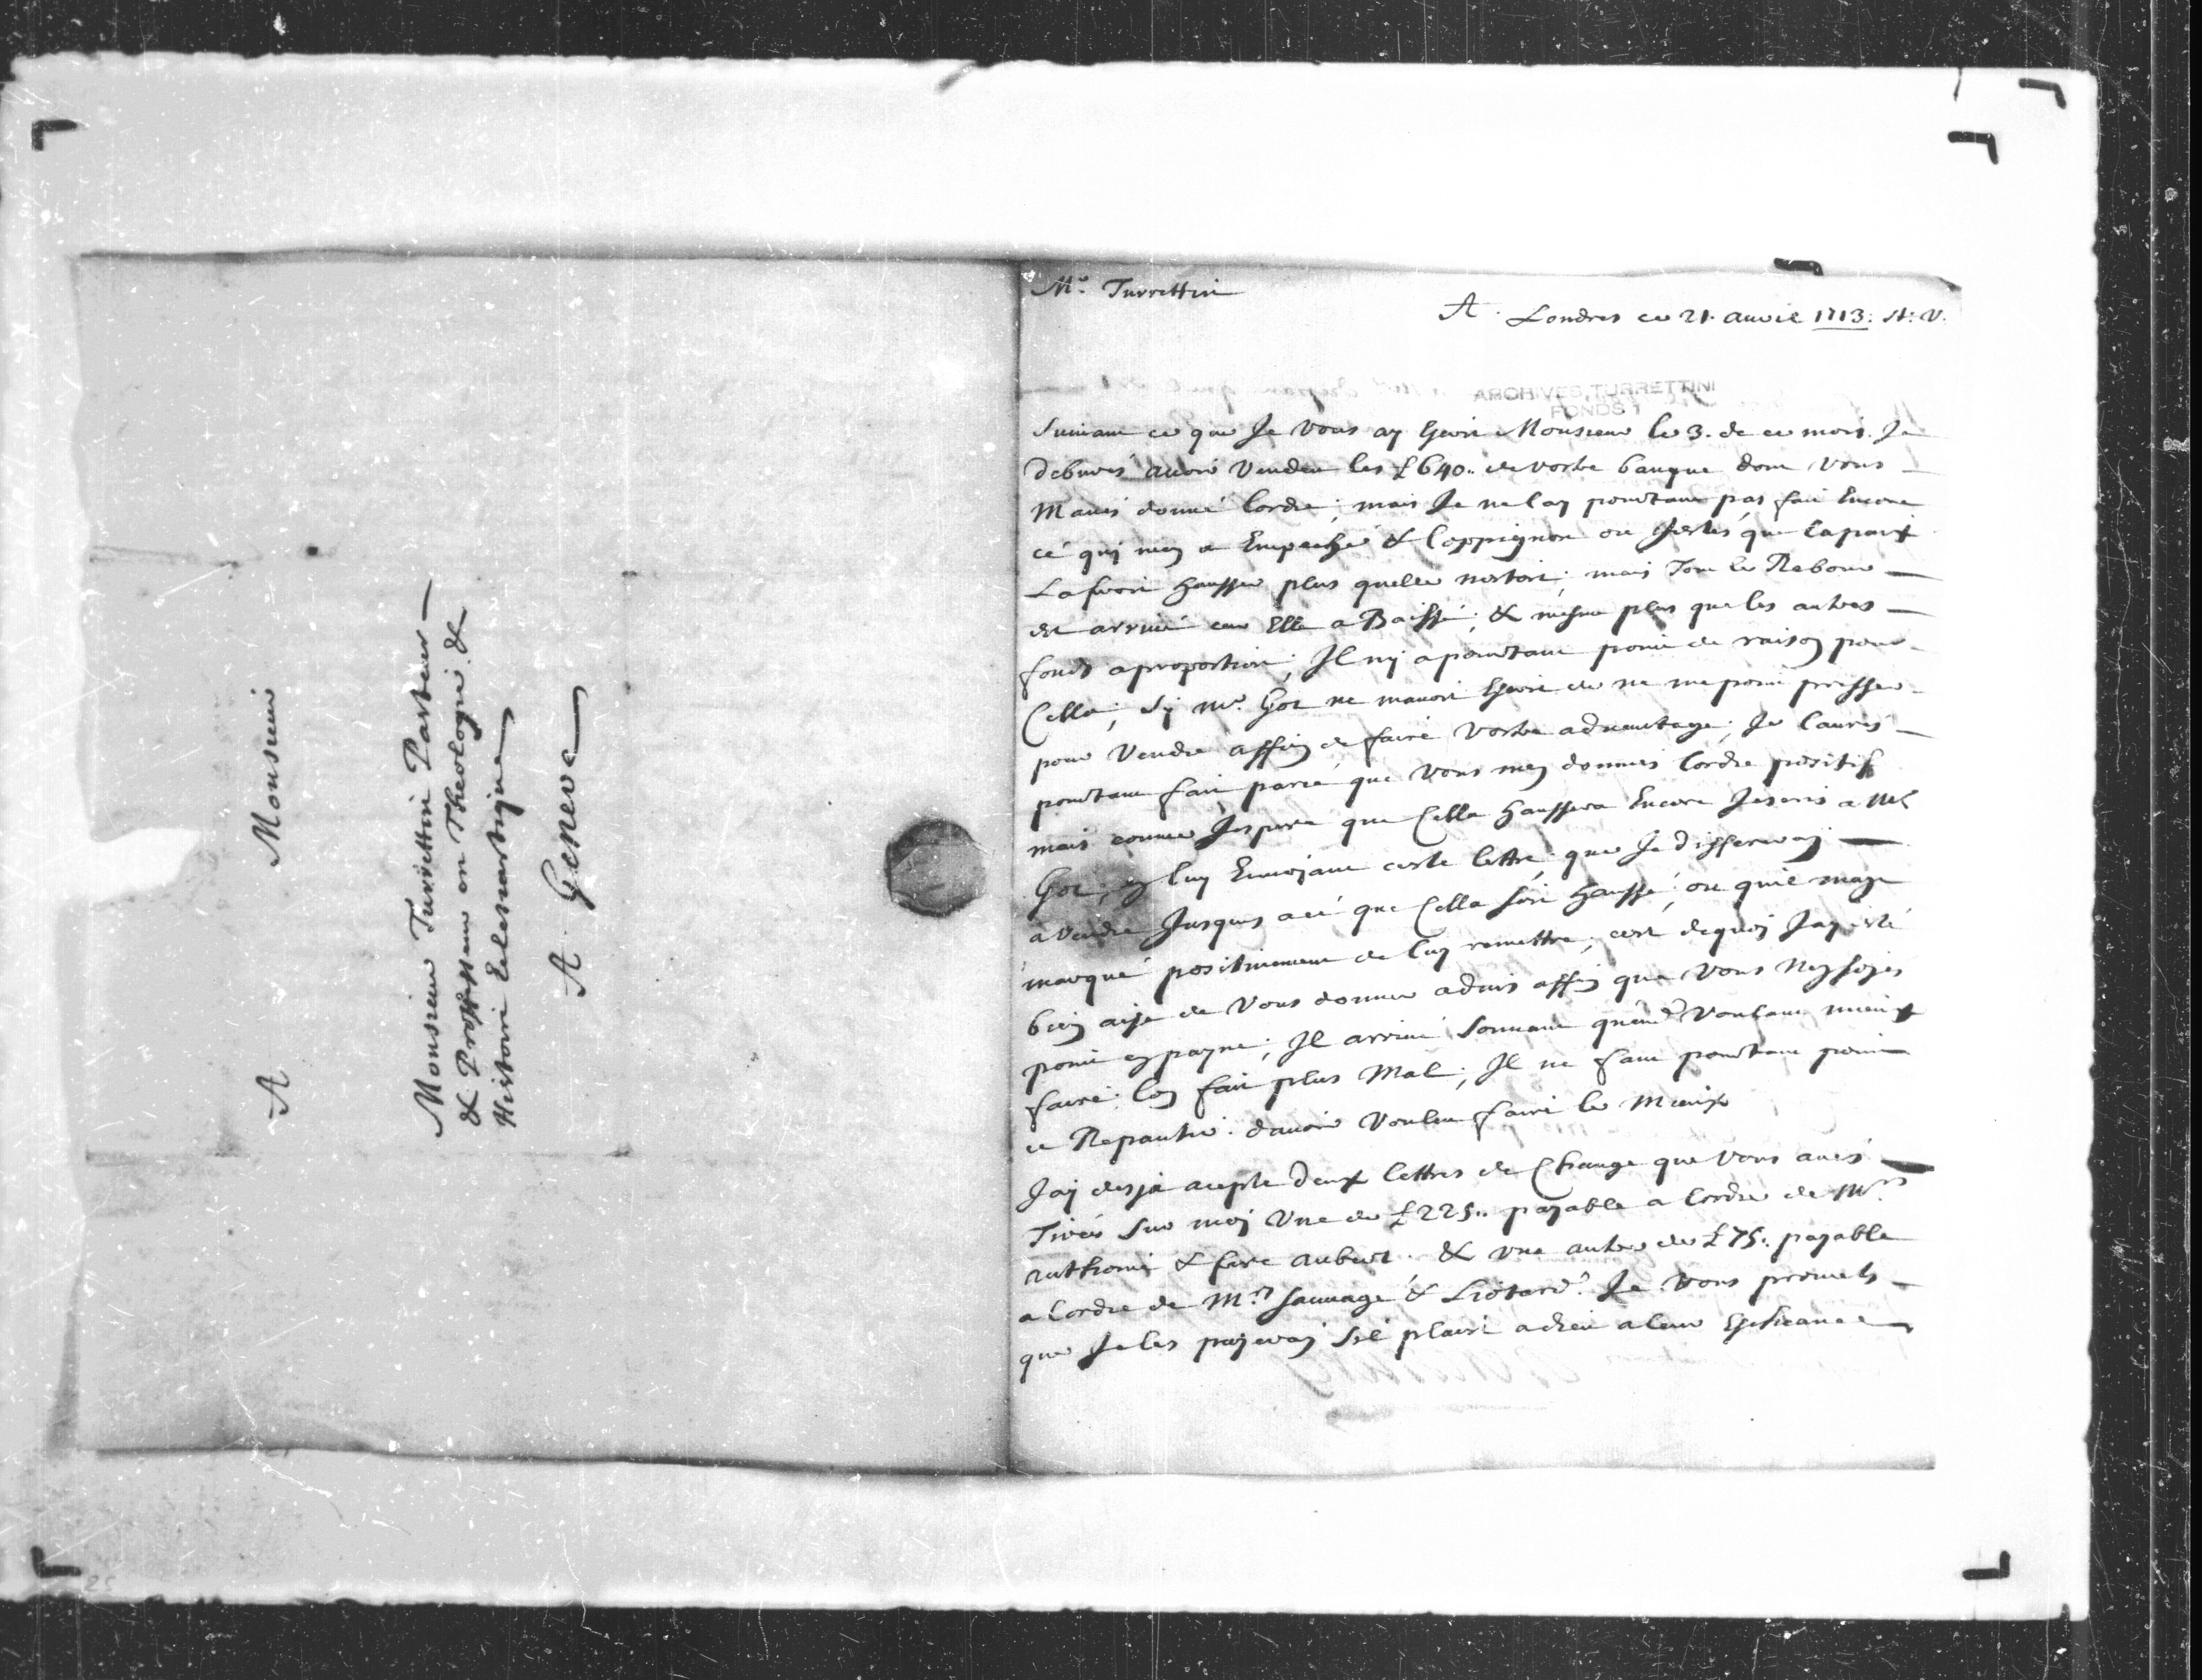 A Monsieur
Monsieur Turrettin Pasteur
& Professeur en Theologie &
Histoire Eclesiastique
A Geneve
Mr. Turrettin
A Londres ce 21. auvil 1713. st: v.
ARCHIVES TURRETTINI
FONDS 1
Suivant ce que Je vous ay Escrit Monsieur le 3. de ce mois. Je
debvrés avoir vendeu les £640.. de vostre banque dont vous
Mavés donné lordre; mais Je ne lay pourtant pas fait Encore
cé qui men a Empeché & loppignon ou Jestés que la paix
La feroit hausser plus quelle nestoit; mais Tout le Rebours
est arrivé car Elle a Baissé; & mesme plus que les autres
fonds a proportion; Il ny a pourtant point de raison pour
Cella; Sy Mr. Got ne mavoit Escrit de ne me point presser
pour vendre affin de faire vostre advantage; Je laurés
pourtant fait parcé que vous men donniés lordre positif
mais comme Jespere que Cella haussera Encore Jescris a Mr
Got; en luy Envojant ceste lettre; que Je differeray
a vendre Jusques a cé que Cella soit haussé; ou quil maye
marqué positivement de luy remettre; cest dequoy Jay esté
bien aise de vous donner advis affin que vous Ney sojés
point en payne; Il arrive souvant quend voulant mieux
faire; lon fait plus Mal; Il ne faut pourtant point
ce Repantir. davoir voulu faire le Mieux
Jay desja acepté deux lettres de Change que vous avés
Tirés sur moy Une de £225.. payable a lordre de Mrs
anthoine & fare aubert. & une autre de £75.. payable
a lordre de Mrs Sauvage & Liotard. Je vous promets
que Je les payeray Sil plait a dieu a leur Escheance
25